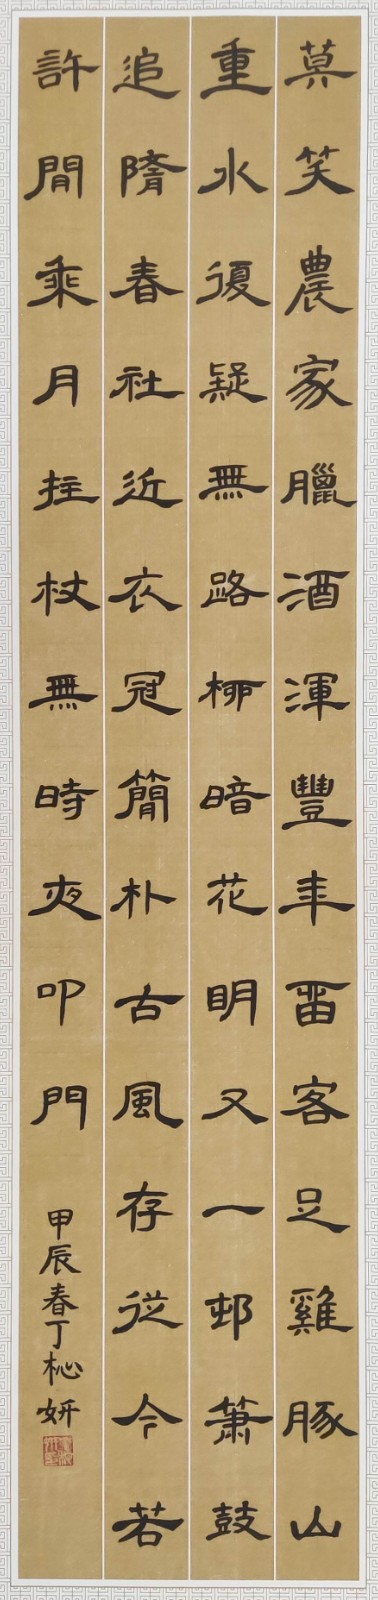 莫笑農家臘酒渾豐年畱客足雞豚山
重水復疑無路柳暗花明又一邨簫鼓
追隋春社近衣冠簡朴古風存從今若
許閒乘月拄杖無時夜叩門
甲辰春丁杺妍